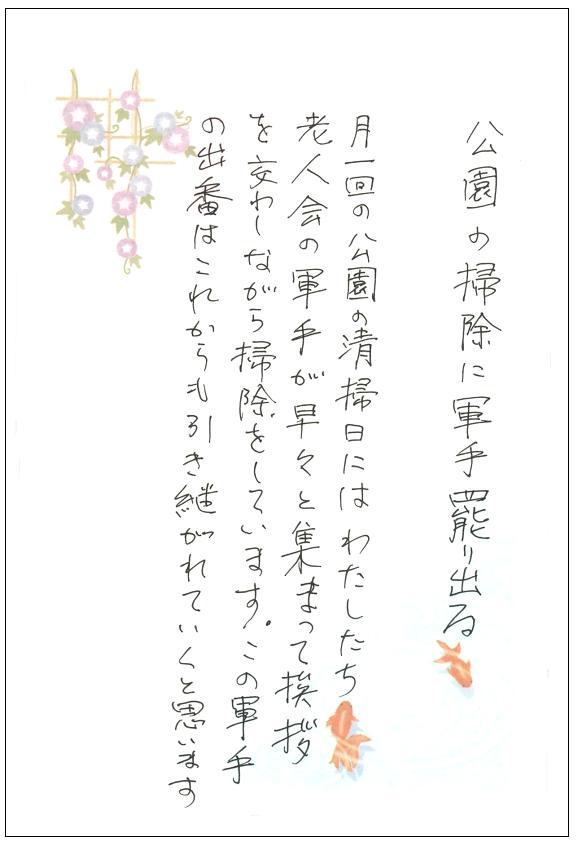 公園の掃除に軍手罷り出る
月一回の公園の清掃日にはわたしたち
老人会の軍手が早々と集まって挨拶
を交わしながら掃除をしています。この軍手
の出番はこれからも引き継がれていくと思います